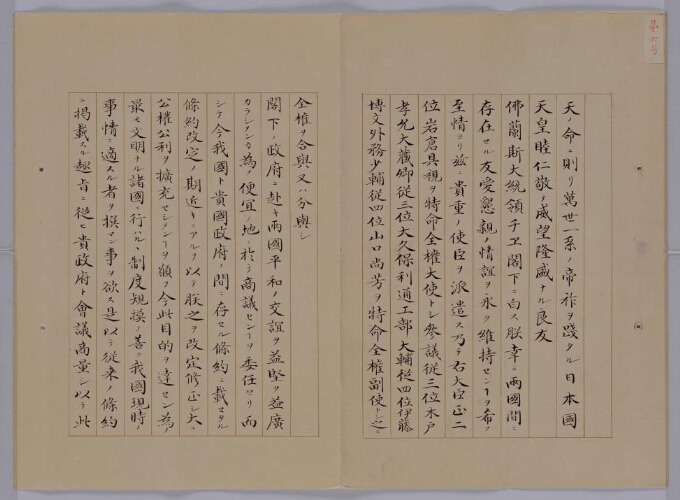 第六号
天ノ命ニ則リ萬世一系ノ帝祚ヲ踐タル日本國
天皇睦仁敬テ威望隆盛ナル良友
佛蘭斯大統領チエ閣下ニ白ス朕幸ニ兩國間ニ
存在セル友愛懇親ノ情誼ヲ永ク維持センヿヲ希フ
至情ヨリ茲ニ貴重ノ使臣ヲ派遣ス乃チ右大臣正二
位岩倉具視ヲ特命全權大使トシ參議從三位木戸
孝允大藏卿從三位大久保利通工部大輔從四位伊藤
博文外務少輔從四位山口尚芳ヲ特命全權副使トシ之ニ
全權ヲ合與又ハ分與シ
閣下ノ政府ニ赴キ兩國平和ノ交誼ヲ益堅ク益廣
カラシメンカ為メ便宜ノ地ニ於テ商議センヿヲ委任セリ而
シテ今我國ト貴國政府ノ間ニ存セル條約ニ載セタル
條約改定ノ期近キニアルヲ以テ朕之ヲ改定修正シ大ニ
公權公利ヲ擴充セシメンヿヲ願フ今此目的ヲ達セン為メ
最モ文明ナル諸國ニ行ハルヽ制度規模ノ善ク我國現時ノ
事情ニ適スル者ヲ撰マン事ヲ欲ス是以テ從来ノ條約
ニ掲載スル趣旨ニ從ヒ貴政府ト會議商量シ以テ此